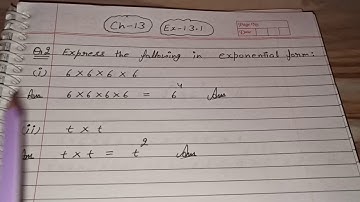 Ch-13 Ex-13.1
Page No.
Date
Q.2 Express the following in exponential form:
(i) 6×6×6×6
Ans 6×6×6×6 = 6⁴ Ans
(ii) t×t
Ans t×t = t² Ans